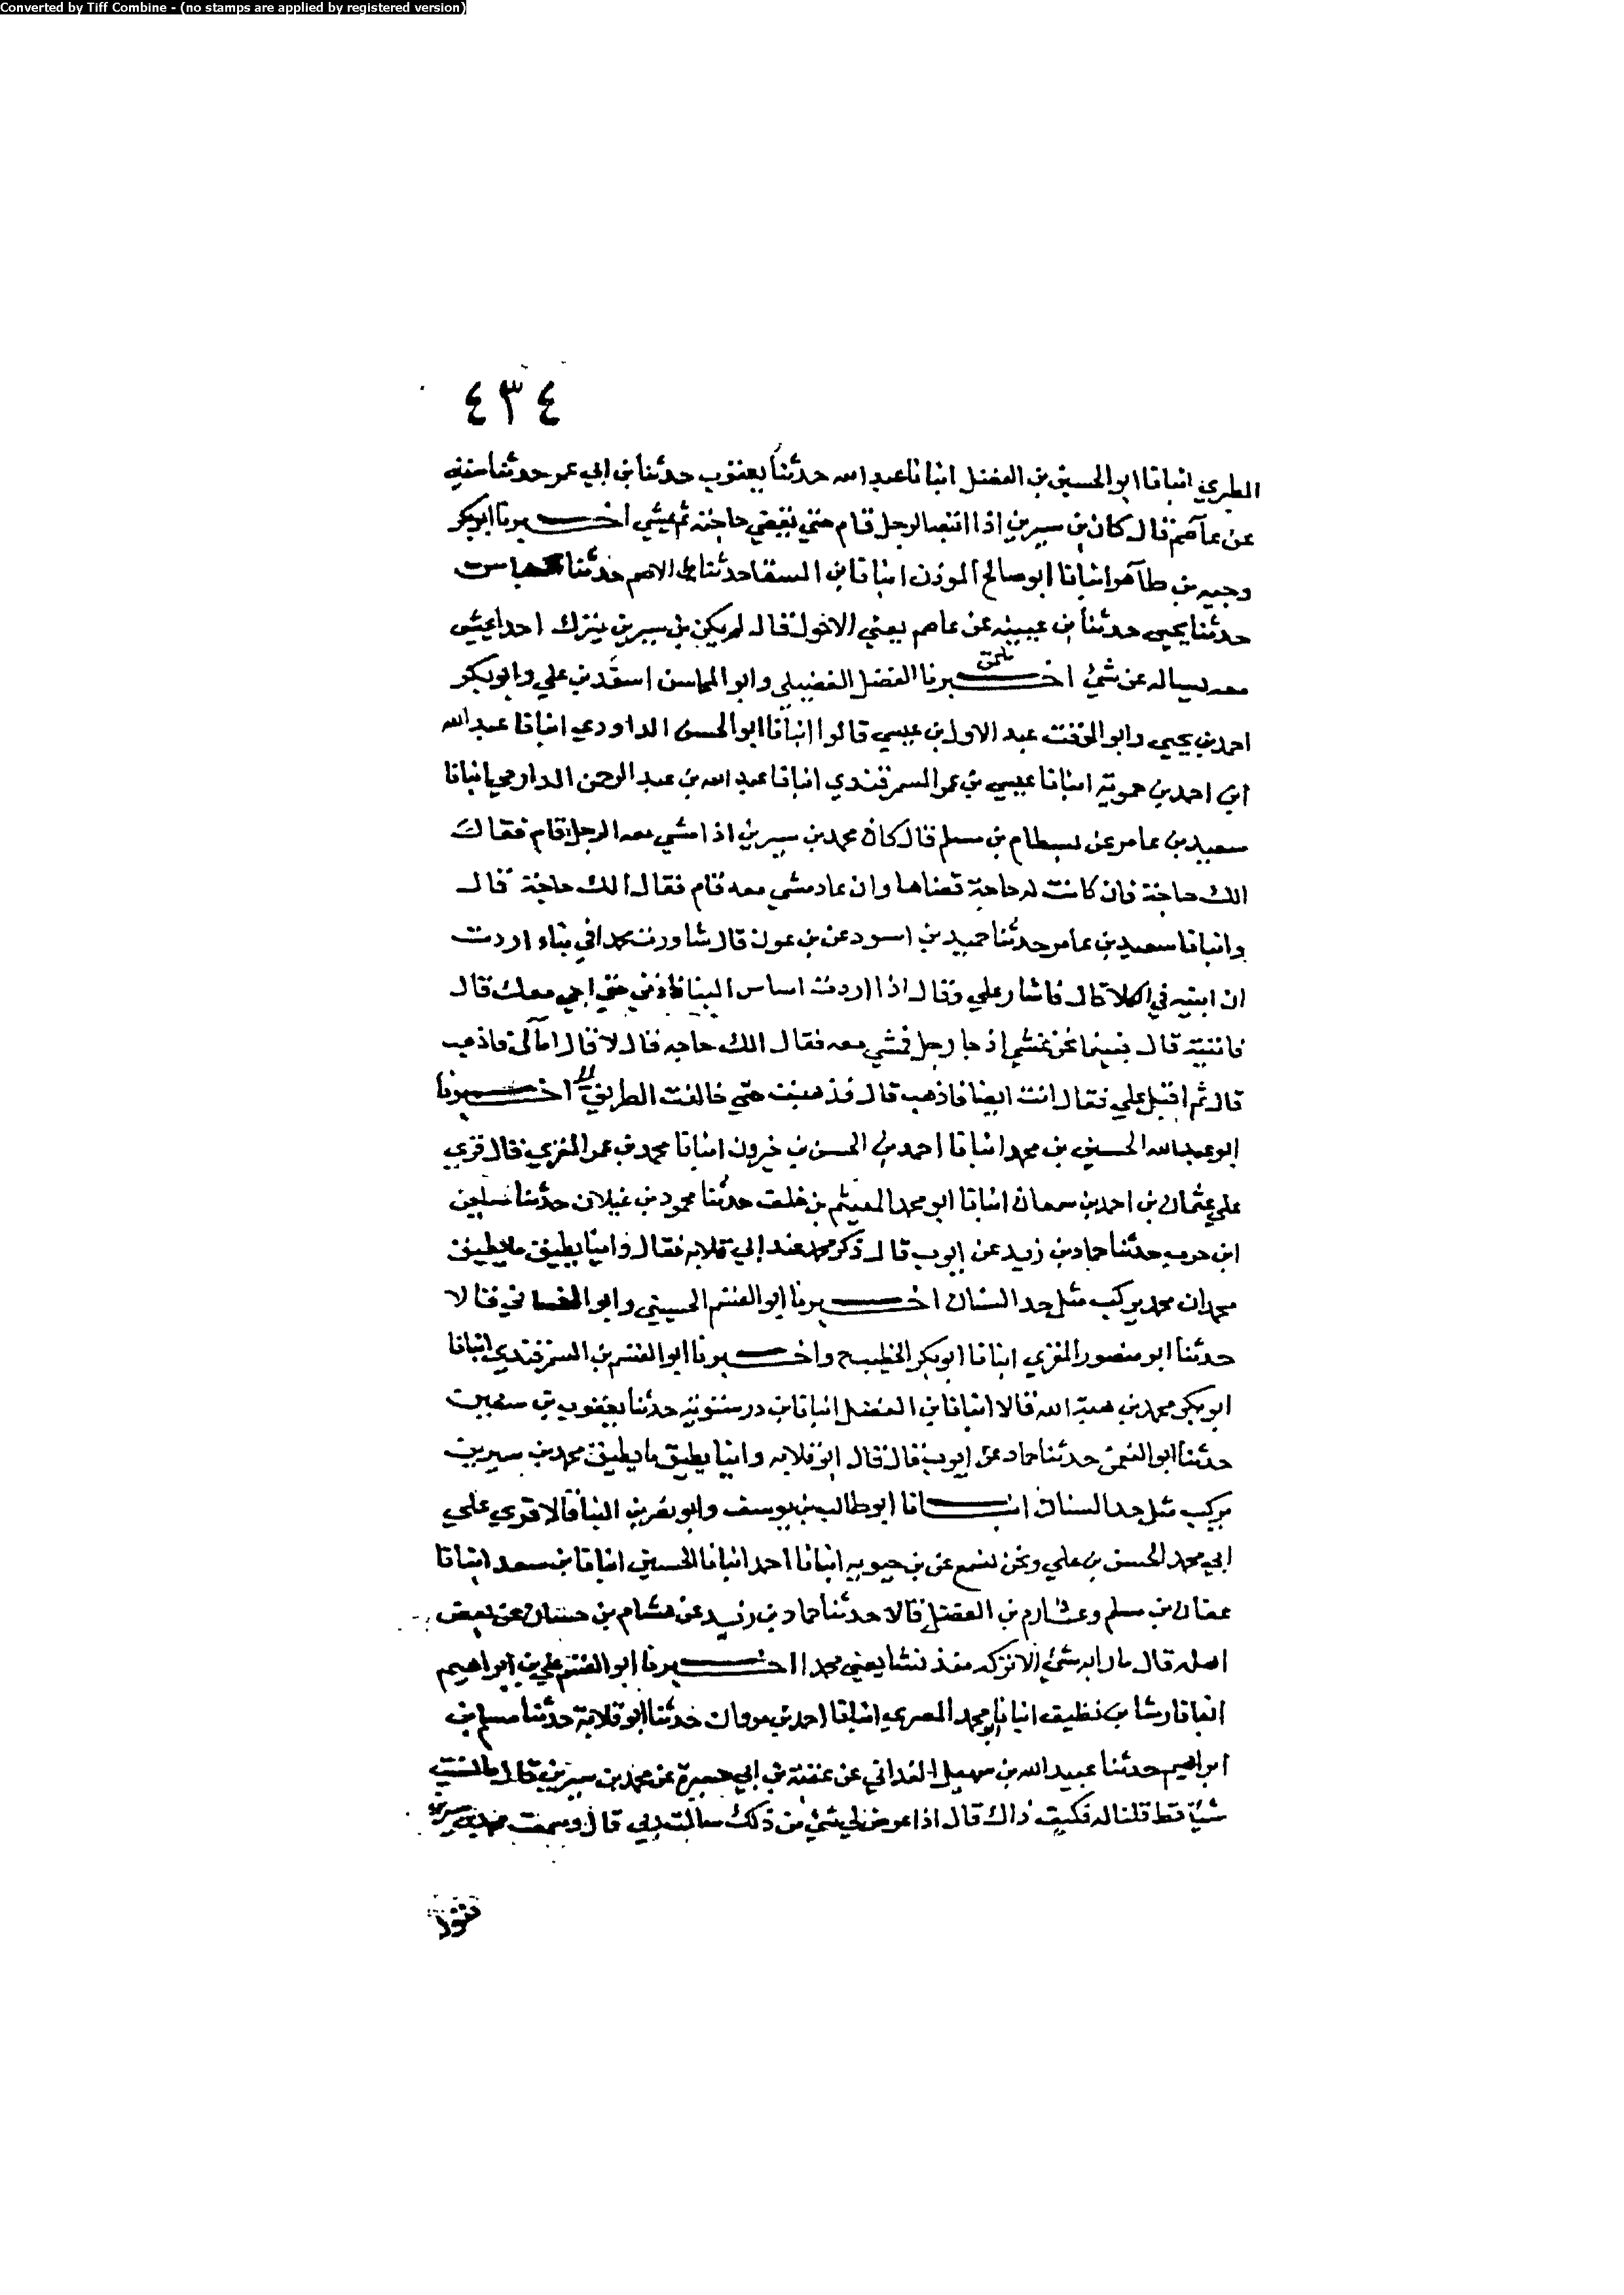 Converted by Tiff Combine - (no stamps are applied by registered version)
٤٣٤
الطبري انبانا ابو الحسين بن الفضل انبانا عبد الله حدثنا يعقوب حدثنا بن ابي عمر حدثنا سفين
عن عاصم قال كان بن سيرين اذا اتبعه الرجل قام حتي يقضي حاجته ثم يمشي اخبرنا ابو بكر
وجيه بن طاهر انبانا ابو صالح الموذن انبانا بن السقا حدثنا الاصم حدثنا عباس
حدثنا يحيي حدثنا بن عيينه عن عاصم يعني الاحول قال لم يكن بن سيرين يترك احدا يمشي
معه يساله عن شئ اخبرنا الفضل الفضيلي وابو المحاسن اسعد بن علي وابو بكر
احمد بن يحيي وابو الوقت عبد الاول بن عيسي قالوا انبانا ابو الحسن الداودي انبانا عبد الله
ابن احمد بن حموية انبانا عيسي بن عمر السمرقندي انبانا عبد الله بن عبد الرحمن الدارمي انبانا
سعيد بن عامر عن بسطام بن مسلم قال كان محمد بن سيرين اذا مشي معه الرجل قام فقال
الك حاجة فان كانت له حاجة قضاها وان عاد مشي معه قام فقال الك حاجة قال
وانبانا سعيد بن عامر حدثنا حميد بن اسود عن بن عون قال شاورت محمدا في بناء اردت
ان ابنيه في الكلا قال فاشار علي وقال اذا اردت اساس البنا فاذني حتي اجي معك قال
فاتيته قال فبينما نحن نمشي اذ جا رجل فمشي معه فقال الك حاجه قال لا قال اما لا فاذهب
قال ثم اقبل علي فقال انت ايضا فاذهب قال فذهبت حتي خالفت الطريق اخبرنا
ابو عبد الله الحسين بن محمد انبانا احمد بن الحسن بن خيرون انبانا محمد بن عمر المقري قال قري
علي عثمان بن احمد بن سمعان انبانا ابو محمد الهيثم بن خلف حدثنا محمود بن غيلان حدثنا سليمن
ابن حرب حدثنا حماد بن زيد عن ايوب قال ذكر محمد عند ابي قلابه فقال واينا يطيق ما يطيق
محمد ان محمد يركب مثل حد السنان اخبرنا ابو القسم الحسيني وابو الغساني قالا
حدثنا ابو منصور المقري انبانا ابو بكر الخطيب ح واخبرنا ابو القسم بن السمرقندي انبانا
ابو بكر محمد بن هبة الله قالا انبانا بن الفضل انبانا بن درستويه حدثنا يعقوب بن سفين
حدثنا ابو النعمن حدثنا حماد عن ايوب قال قال ابو قلابه واينا يطيق ما يطيق محمد بن سيرين
يركب مثل حد السنان انبانا ابو طالب بن يوسف وابو نصر بن البنا قالا قري علي
ابي محمد الحسن بن علي ونحن نسمع عن بن حيويه انبانا احمد انبانا الحسين انبانا بن سعد انبانا
عفان بن مسلم وعارم بن الفضل قالا حدثنا حماد بن زيد عن هشام بن حسان عن بعض
اهله قال ما رابه شئ الا تركه منذ نشا يعني محمدا اخبرنا ابو القسم علي بن ابراهيم
انبانا رشا بن نظيف انبانا ابو محمد المصري انبانا احمد بن مروان حدثنا ابو قلابة حدثنا مسلم بن
ابراهيم حدثنا عبيد الله بن سهيل الغداني عن عقبة بن ابي حمزة عن محمد بن سيرين قال
شيا قط قلنا له فكيف ذاك قال اذا عرض لي شئ من ذلك سالت ربي قال وسمعت محمد بن سيرين